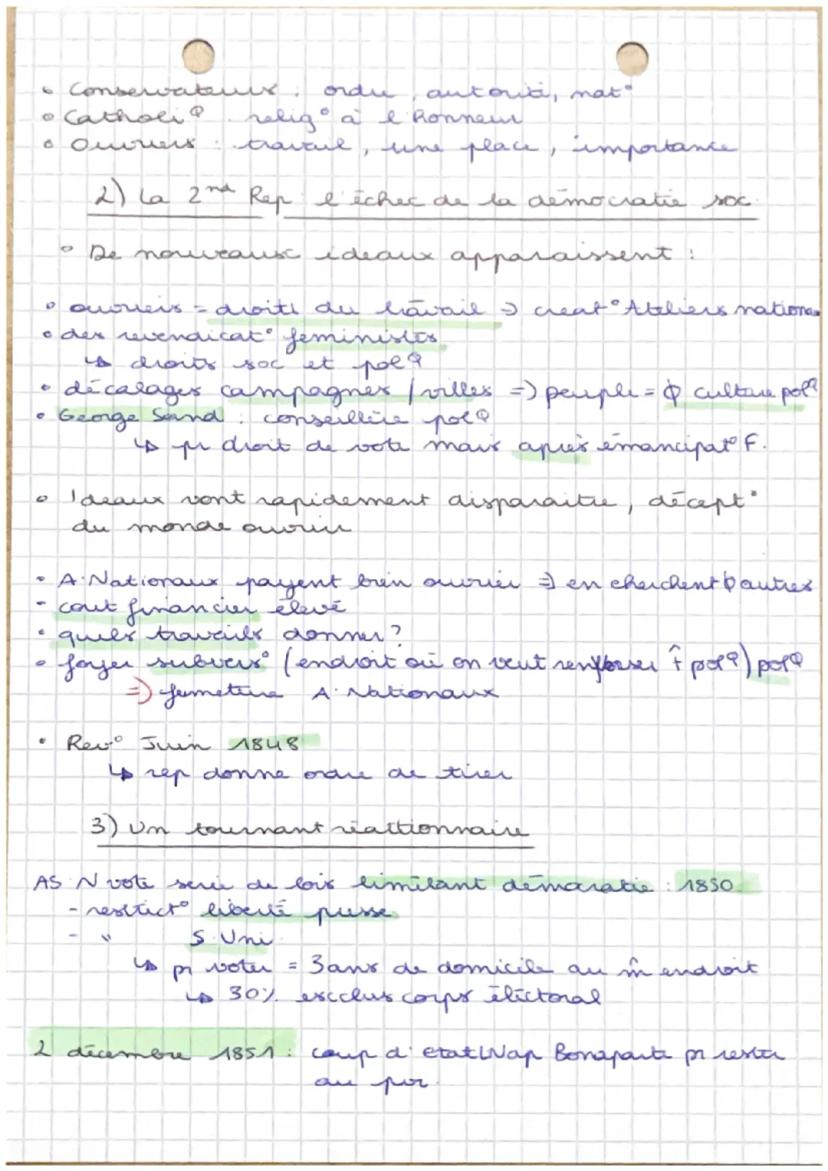 • Conservateurs : ordre, autorité, nat°
• Catholiq : relig° à l'honneur
• Ouvriers : travail, une place, importance
2) La 2nd Rep : l'échec de la démocratie soc.
• De nouveaux ideaux apparaissent :
• ouvriers = droits du travail => creat° Ateliers nationa
• des revendicat° feministes
↳ droits soc et polq
• décalages campagnes / villes => peuple = ϕ culture polq
• George Sand : conseillère polq
↳ pr droit de vote mais après émancipat° F.
• Ideaux vont rapidement disparaitre, décept°
du monde ouvrier
• A. Nationaux payent bien ouvrier => en cherchent ϕ autres
- cout financier élevé
• quels travails donner ?
• foyer subvers° (endroit où on veut renverser î polq) polq
=> fermeture A. Nationaux
• Rev° Juin 1848
↳ rep donne ordre de tirer
3) Un tournant réactionnaire
AS N vote serie de lois limitant démocratie : 1850
- restrict° liberté presse
- " S. Uni
↳ pr voter = 3 ans de domicile au m̂ endroit
↳ 30% excclus corps électoral
2 décembre 1851 : coup d'etat L Nap Bonaparte pr rester
au pvr.